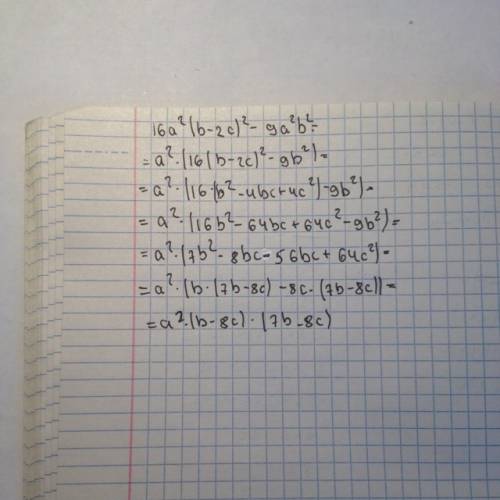 16a²(b-2c)² - 9a²b² =
= a² · (16(b-2c)² - 9b²) =
= a² · (16 · (b² - 4bc + 4c²) - 9b²) =
= a² · (16b² - 64bc + 64c² - 9b²) =
= a² · (7b² - 8bc - 56bc + 64c²) =
= a² · (b · (7b - 8c) - 8c · (7b - 8c)) =
= a² · (b - 8c) · (7b - 8c)